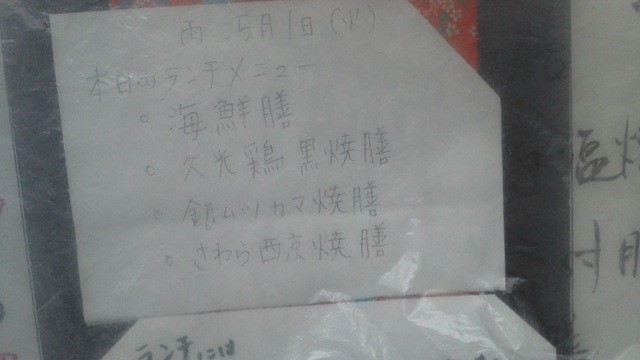 雨 5月1日(水)
本日のランチメニュー
○ 海鮮膳
○ 久光鶏黒焼膳
○ 銀ムツカマ焼膳
○ さわら西京焼膳
ランチには
塩焼
付